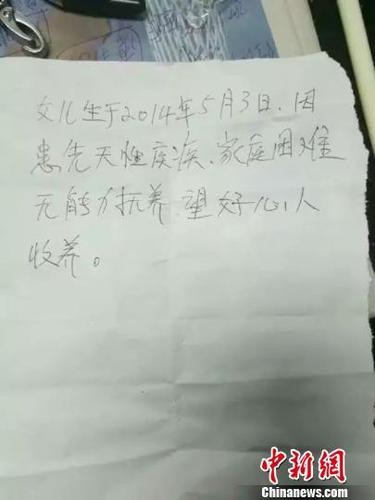 女儿生于2014年5月3日、因
患先天性疾疾、家庭困难
无能力抚养、望好心人
收养。
中新网
Chinanews.com